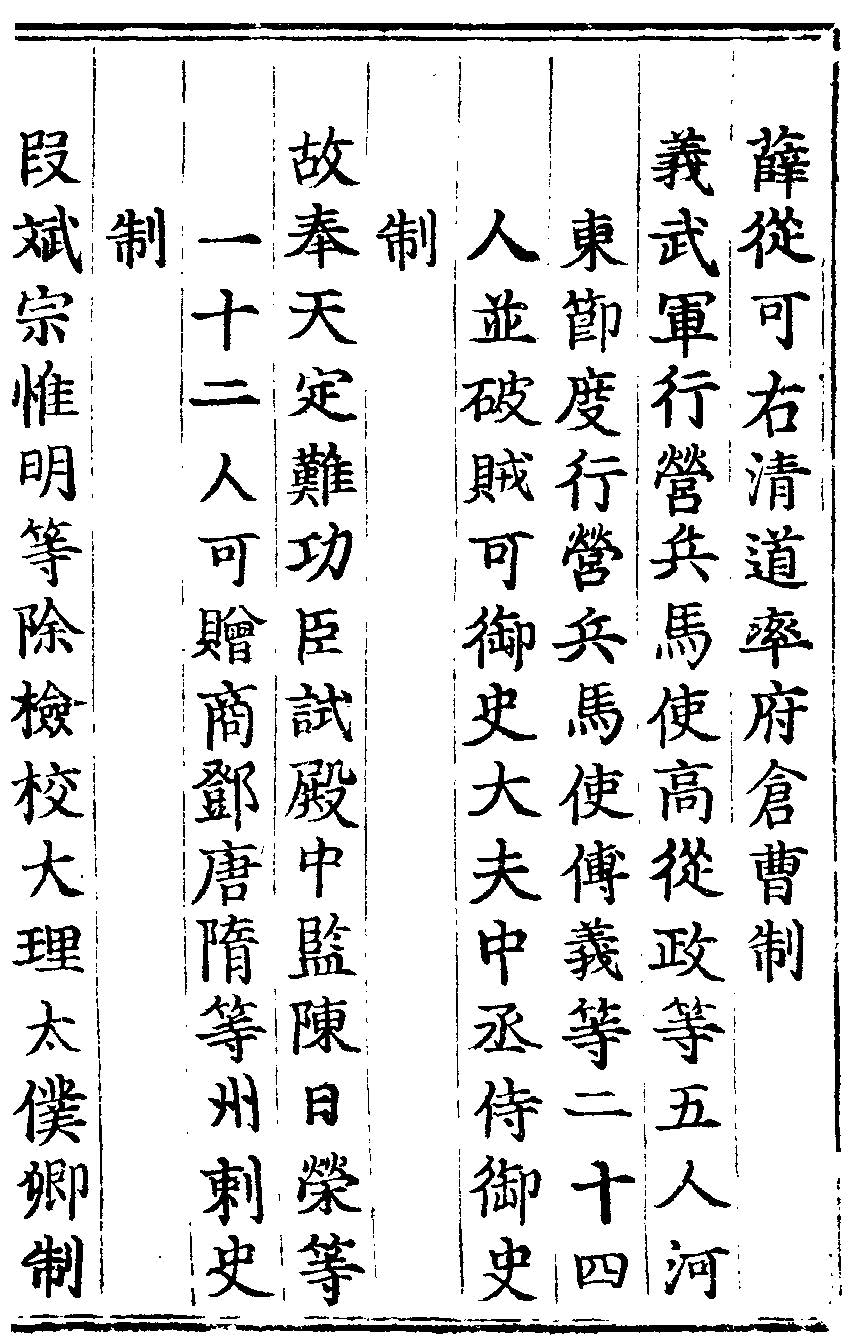 薛從可右清道率府倉曹制
義武軍行營兵馬使高從政等五人河
東節度行營兵馬使傅義等二十四
人並破賊可御史大夫中丞侍御史
制
故奉天定難功臣試殿中監陳日榮等
一十二人可贈商鄧唐隋等州刺史
制
段斌宗惟明等除檢校大理太僕卿制